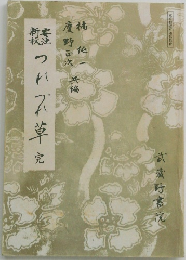 橘純一
慶野正次 共編
要注
新校 つれづれ草 完
武蔵野書院